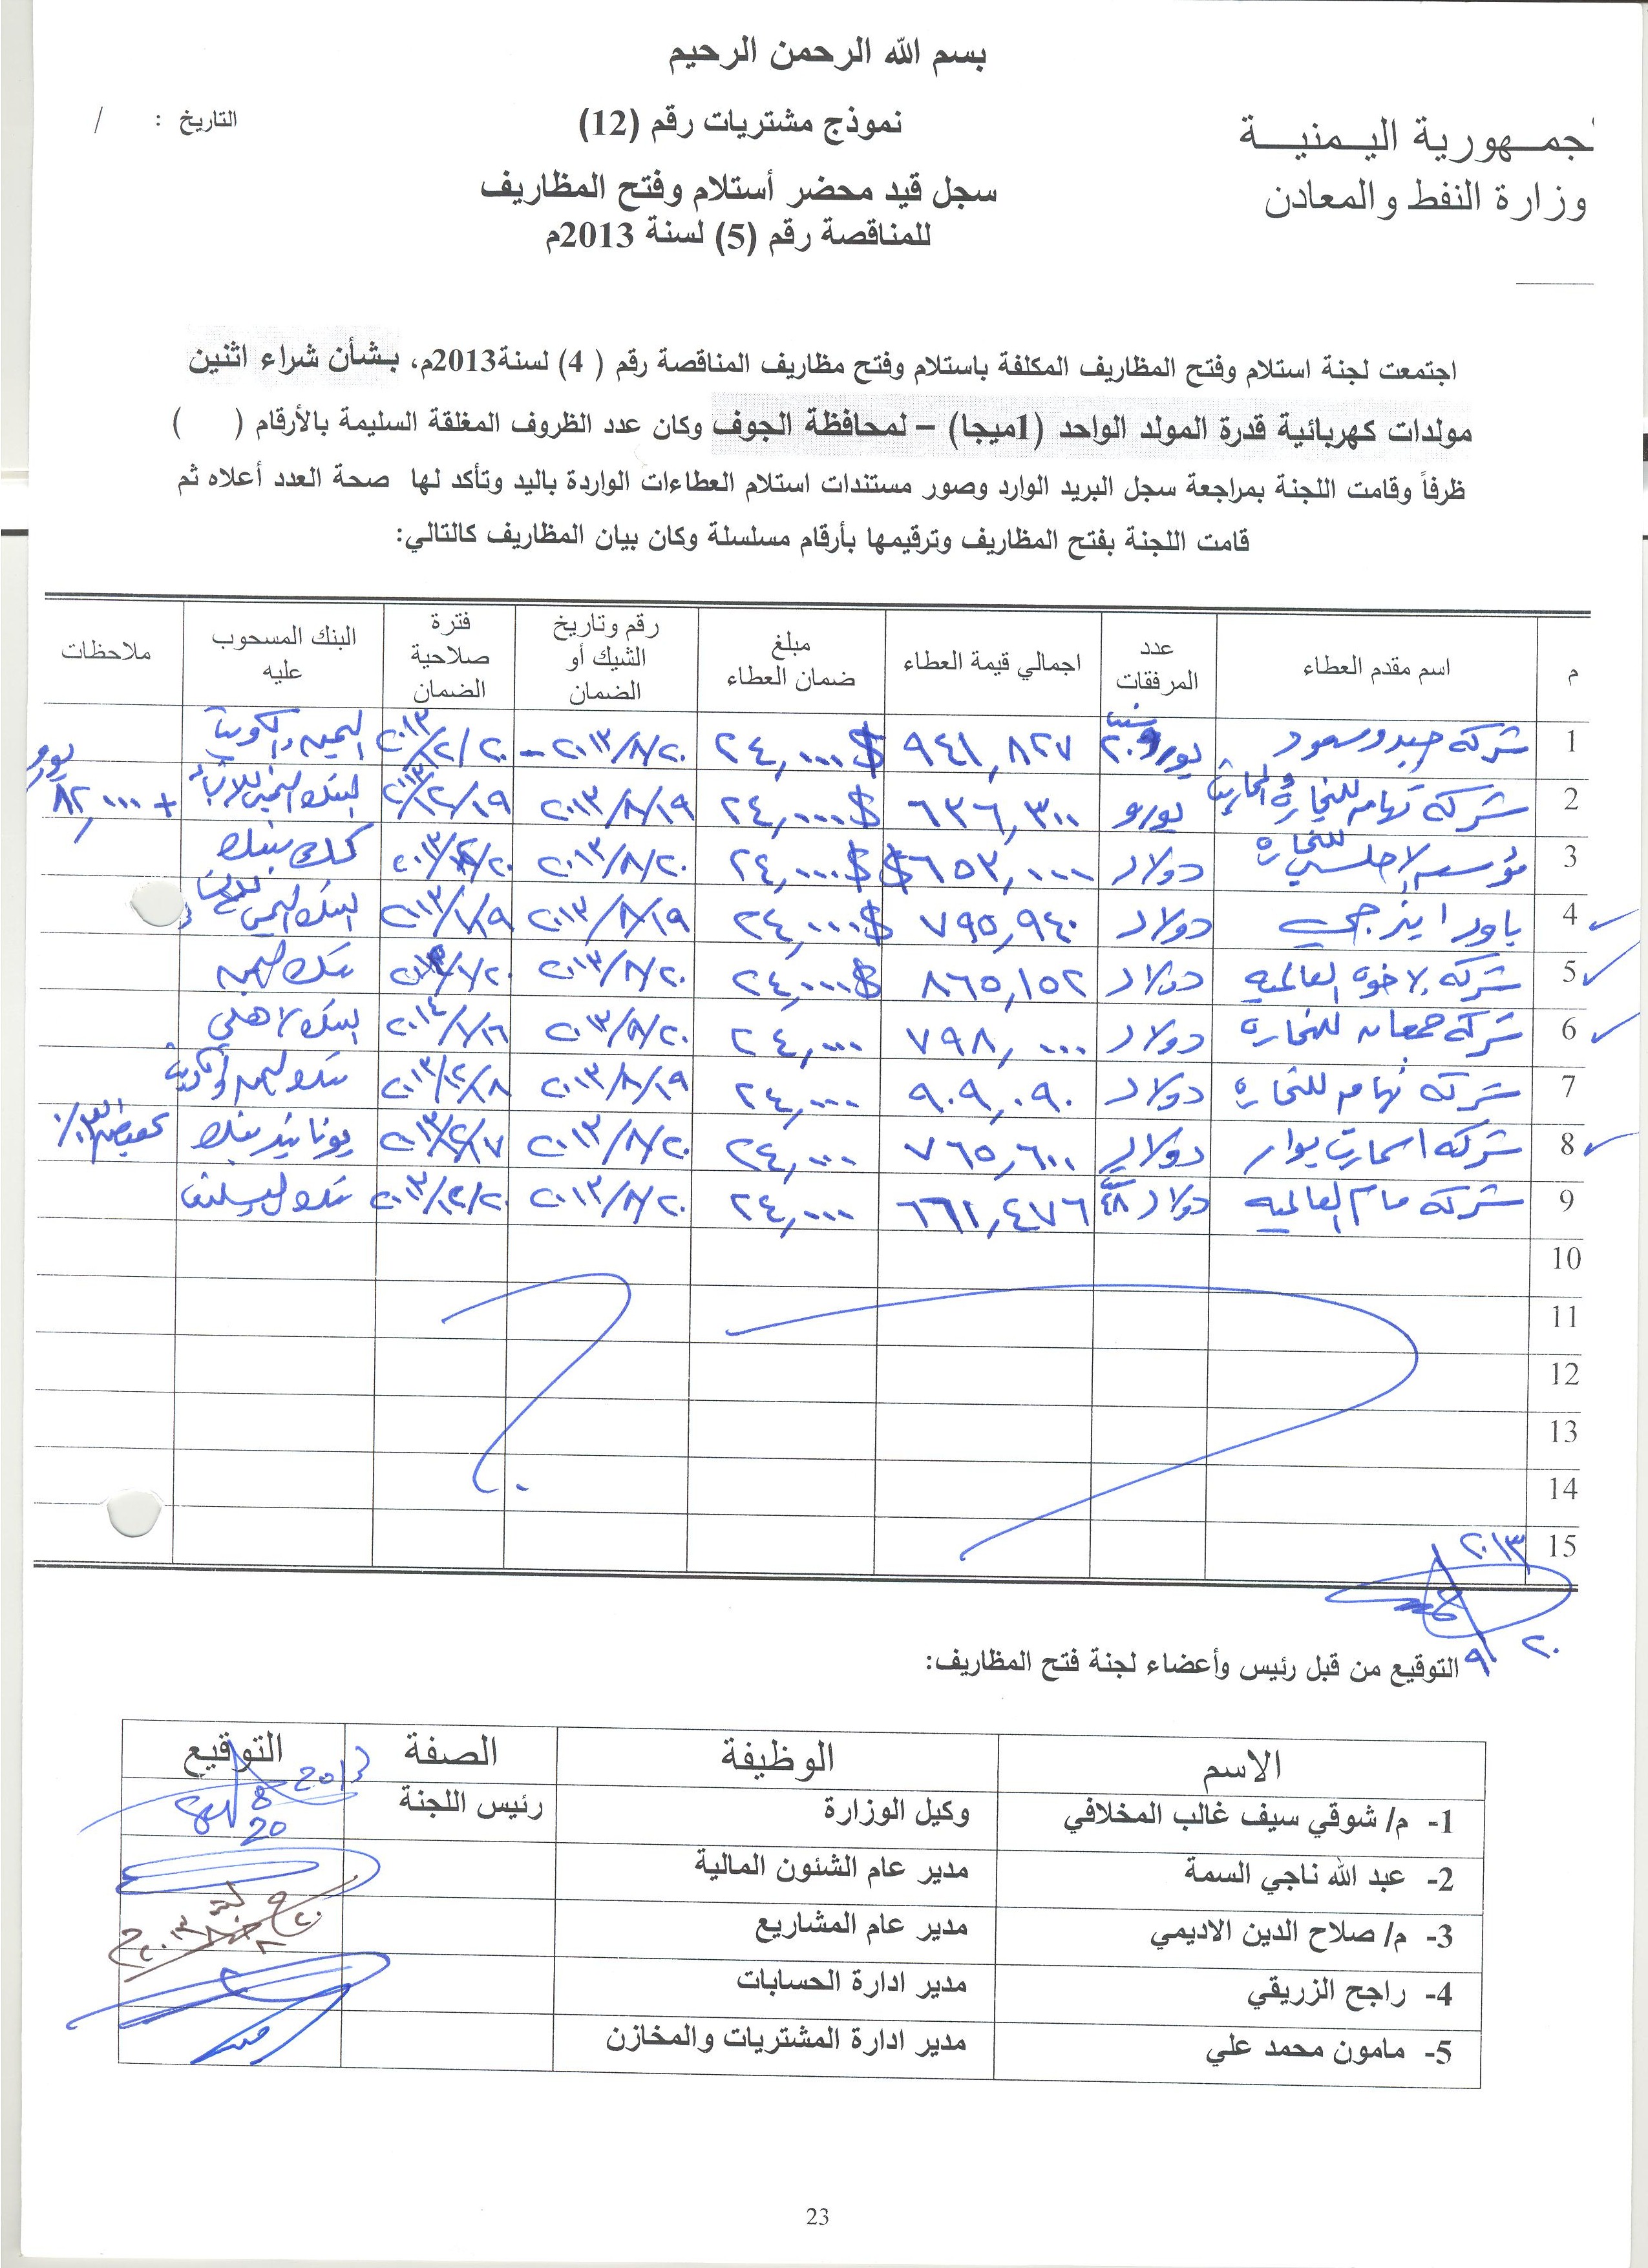 بسم الله الرحمن الرحيم
جمـــهورية اليـــمنيـــة
وزارة النفط والمعادن
نموذج مشتريات رقم (12)
التاريخ : /
سجل قيد محضر أستلام وفتح المظاريف
للمناقصة رقم (5) لسنة 2013م
اجتمعت لجنة استلام وفتح المظاريف المكلفة باستلام وفتح مظاريف المناقصة رقم ( 4) لسنة2013م، بشأن شراء اثنين
مولدات كهربائية قدرة المولد الواحد (1ميجا) – لمحافظة الجوف وكان عدد الظروف المغلقة السليمة بالأرقام ( )
ظرفاً وقامت اللجنة بمراجعة سجل البريد الوارد وصور مستندات استلام العطاءات الواردة باليد وتأكد لها صحة العدد أعلاه ثم
قامت اللجنة بفتح المظاريف وترقيمها بأرقام مسلسلة وكان بيان المظاريف كالتالي:
م اسم مقدم العطاء عدد المرفقات اجمالي قيمة العطاء مبلغ ضمان العطاء رقم وتاريخ الشيك أو الضمان فترة صلاحية الضمان البنك المسحوب عليه ملاحظات
1 شركة يورو ٩٤١,٨٢٧ ٢٤,٠٠٠$ ٢٠١٣/٨/٢٠ ٢٠١٣/١٢/٢٠ اليمن والكويت
2 شركة تهامه للتجارة يورو ٦٣٦,٣٠٠ ٢٤,٠٠٠$ ٢٠١٣/٨/١٩ ٢٠١٣/١٢/١٩ البنك اليمني للانشاء + ٨٢,٠٠٠ يورو
3 للتجارة دولار ٦٥٣,٠٠٠$ ٢٤,٠٠٠$ ٢٠١٣/٨/٢٠ كاك بنك
4 باور اينرجي دولار ٧٩٥,٩٤٠ ٢٤,٠٠٠$ ٢٠١٣/٨/١٩ البنك اليمني
5 شركة الاخوة العالمية دولار ٨٦٥,١٥٢ ٢٤,٠٠٠$ ٢٠١٣/٨/٢٠ بنك
6 شركة جمعان للتجارة دولار ٧٩٨,٠٠٠ ٢٤,٠٠٠ ٢٠١٣/٨/٢٠ ٢٠١٤/١/١٦ البنك الاهلي
7 شركة تهامه للتجارة دولار ٩٠٩,٠٩٠ ٢٤,٠٠٠ ٢٠١٣/٨/١٩ ٢٠١٣/١٢/١٨ بنك اليمن والكويت
8 شركة اسمارت بوار دولار ٧٦٥,٦٠٠ ٢٤,٠٠٠ ٢٠١٣/٨/٢٠ يونايتد بنك
9 شركة مام العالمية دولار ٤٨ ٦٦١,٤٧٦ ٢٤,٠٠٠ ٢٠١٣/٨/٢٠ ٢٠١٣/١٢/٢٠ بنك
10
11
12
13
14
15
٢٠١٣
٩ ٢٠
التوقيع من قبل رئيس وأعضاء لجنة فتح المظاريف:
الاسم الوظيفة الصفة التوقيع
1- م/ شوقي سيف غالب المخلافي وكيل الوزارة رئيس اللجنة 2013 8 20
2- عبد الله ناجي السمة مدير عام الشئون المالية
3- م/ صلاح الدين الاديمي مدير عام المشاريع
4- راجح الزريقي مدير ادارة الحسابات
5- مامون محمد علي مدير ادارة المشتريات والمخازن
23